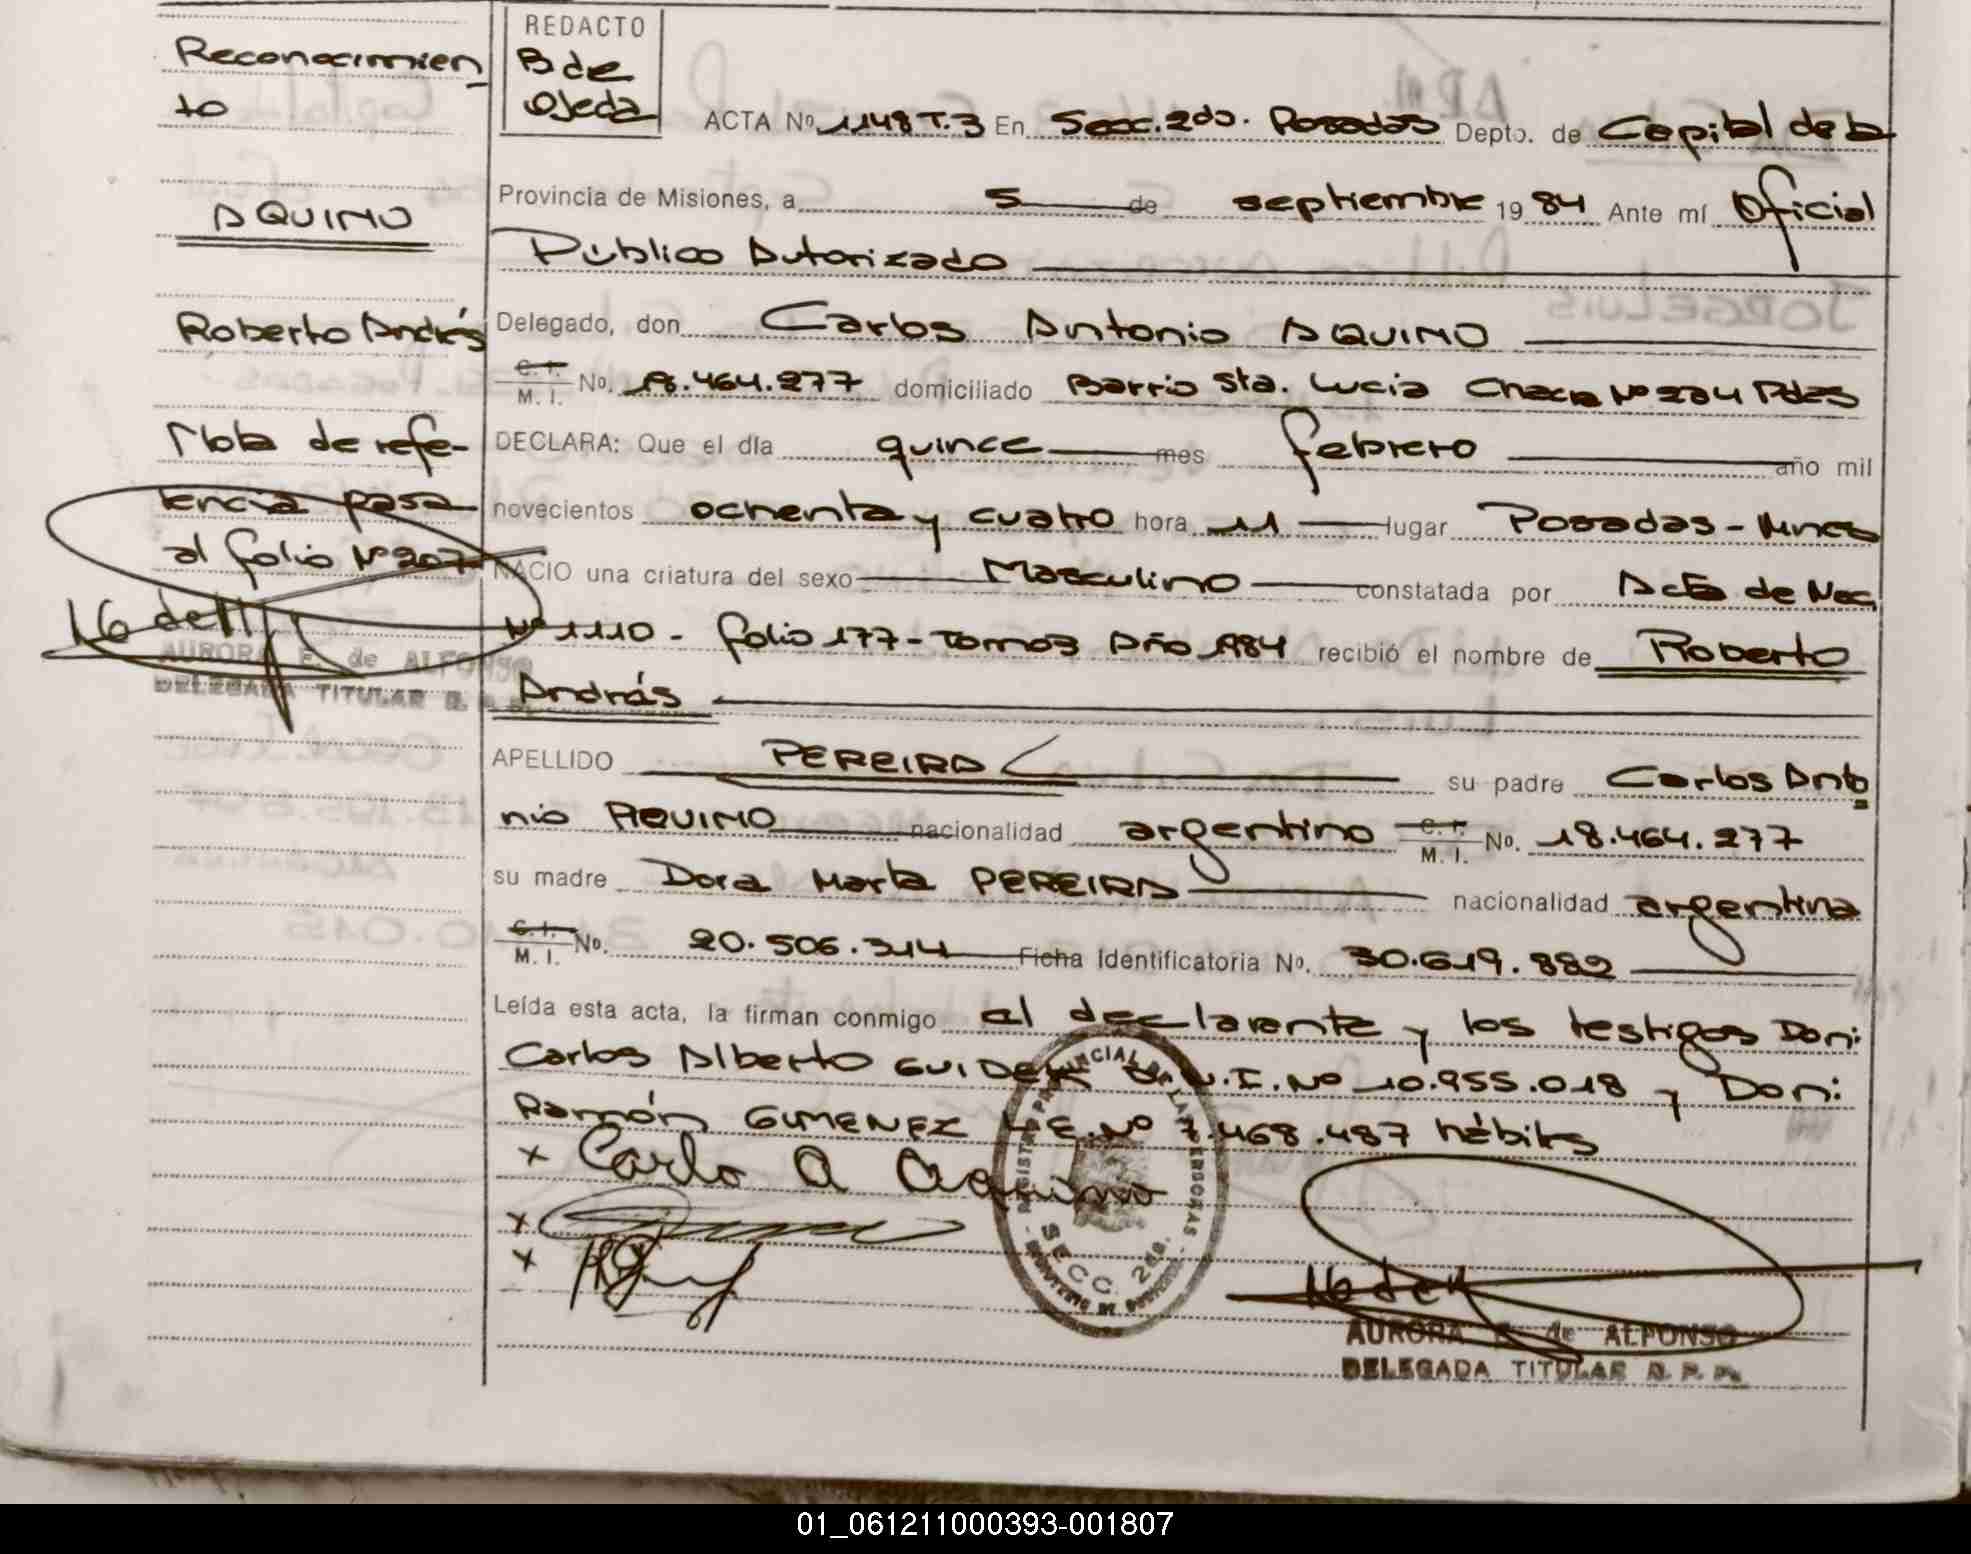 Reconocimien-
to
AQUINO
Roberto Andrés
Nota de refe-
rencia pasa
al folio Nº 207
AURORA E. de ALFONSO
DELEGADA TITULAR R. P. P.
REDACTO
B de
Ojeda
ACTA Nº 1148 T. 3 En Secc. 2da. Posadas Depto. de Capital de la
Provincia de Misiones, a 5 de septiembre 19 84 Ante mí Oficial
Público Autorizado
Delegado, don Carlos Antonio AQUINO
C. I. M. I. No. 18.464.277 domiciliado Barrio Sta. Lucia Chacra Nº 204 Pdas
DECLARA: Que el día quince mes febrero año mil
novecientos ochenta y cuatro hora 11 lugar Posadas - Mnes
NACIO una criatura del sexo Masculino constatada por Acta de Nac.
Nº 1110 - folio 177 - Tomo 3 Año 1984 recibió el nombre de Roberto
Andrés
APELLIDO PEREIRA su padre Carlos Anto
nio AQUINO nacionalidad argentino C. I. M. I. No. 18.464.277
su madre Dora Marta PEREIRA nacionalidad argentina
C. I. M. I. No. 20.506.314 Ficha Identificatoria No. 30.619.882
Leída esta acta, la firman conmigo el declarante y los testigos Don:
Carlos Alberto D.N.I. Nº 10.955.018 y Don:
Ramón GIMENEZ L.E. Nº 7.468.487 hábiles
x Carlo A Aquino
x
x
REGISTRO PROVINCIAL DE LAS PERSONAS
SECC. 2da.
MINISTERIO DE GOBIERNO
AURORA E. de ALFONSO
DELEGADA TITULAR R. P. P.
01_061211000393-001807